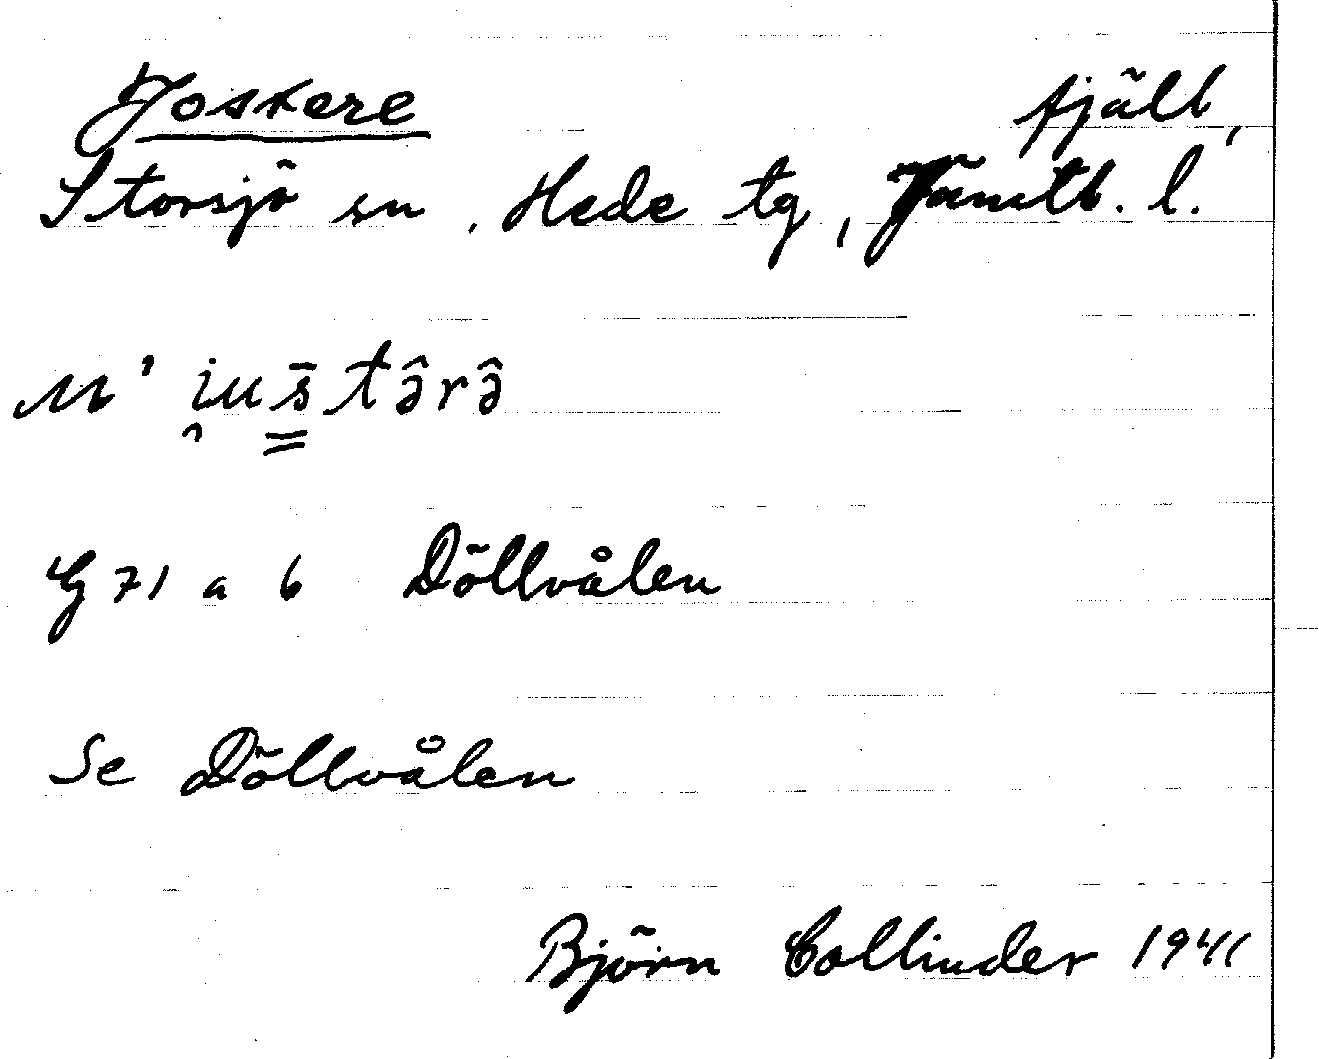 Joskere fjäll,
Storsjö sn, Hede tg, Jämtl. l.
G 71 a b Döllvålen
Se Döllvålen
Björn Collinder 1941